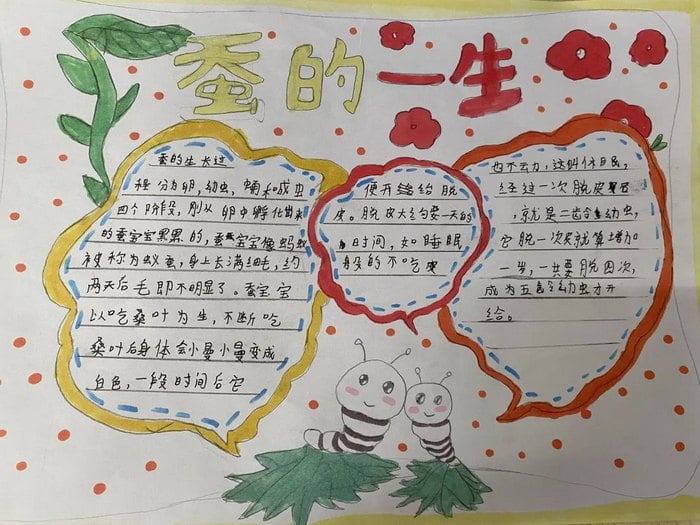 蚕的一生
蚕的生长过
程分为卵,幼虫,蛹和成虫
四个阶段,刚从卵中孵化出来
的蚕宝宝黑黑的,蚕宝宝像蚂蚁
被称为蚁蚕,身上长满细毛,约
两天后毛即不明显了。蚕宝宝
以吃桑叶为生,不断吃
桑叶后身体会小曼小曼变成
白色,一段时间后它
便开始约脱
皮。脱皮大约要一天的
时间,如睡眠
般的不吃
也不云力,这叫休眠,
经过一次脱皮
,就是二齿令幼虫,
它脱一次皮就算增加
一岁,一共要脱四次,
成为五齿令幼虫才开
给。